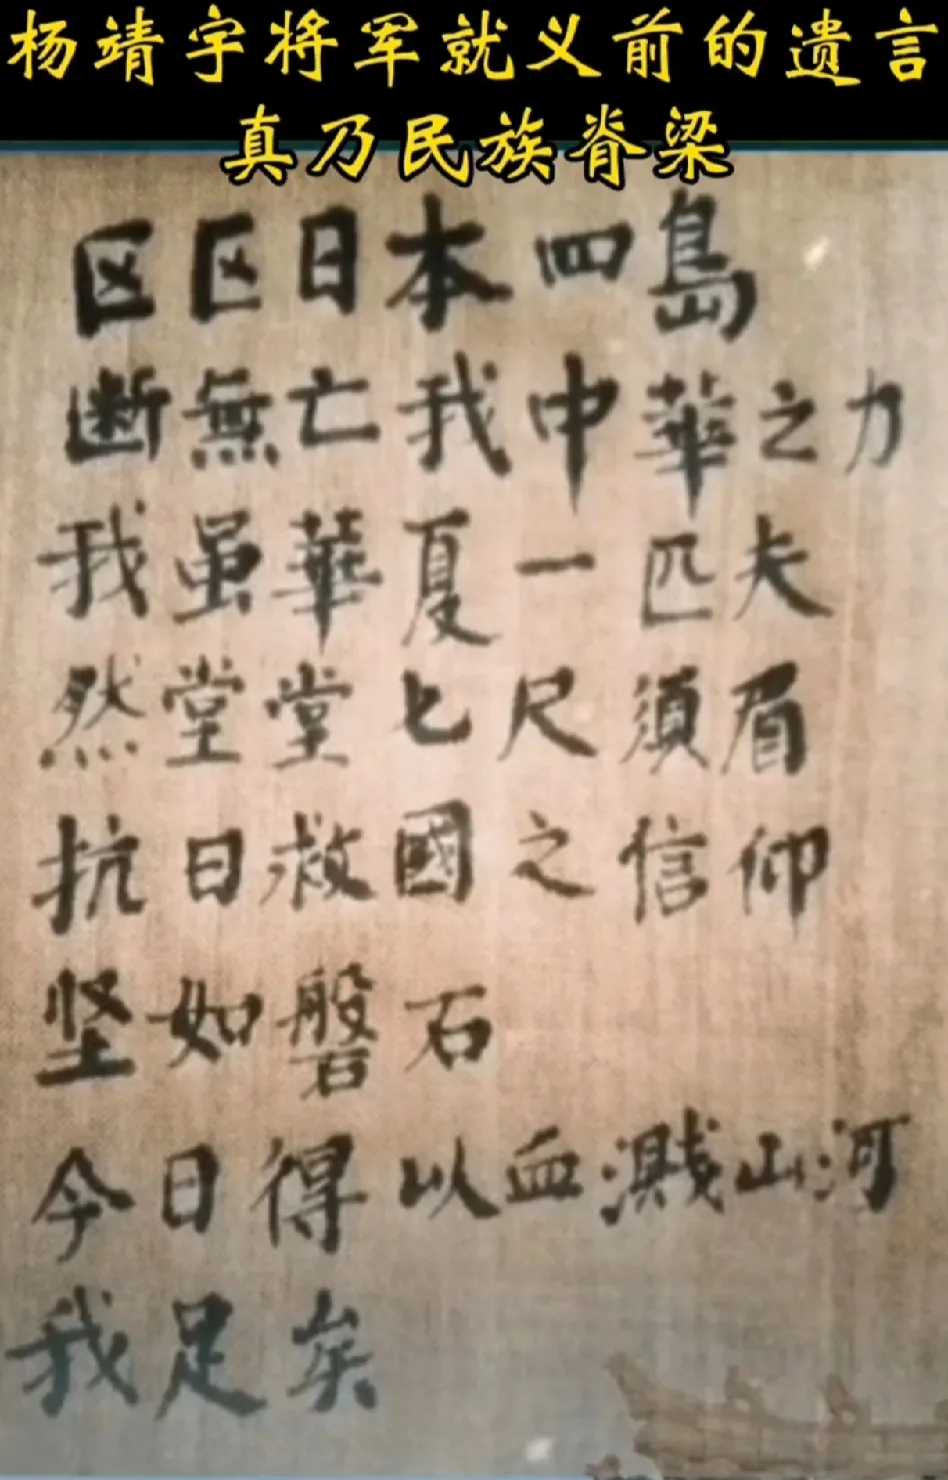 杨靖宇将军就义前的遗言
真乃民族脊梁
区区日本四島
断無亡我中華之力
我虽華夏一匹夫
然堂堂七尺須眉
抗日救國之信仰
坚如磐石
今日得以血濺山河
我足矣